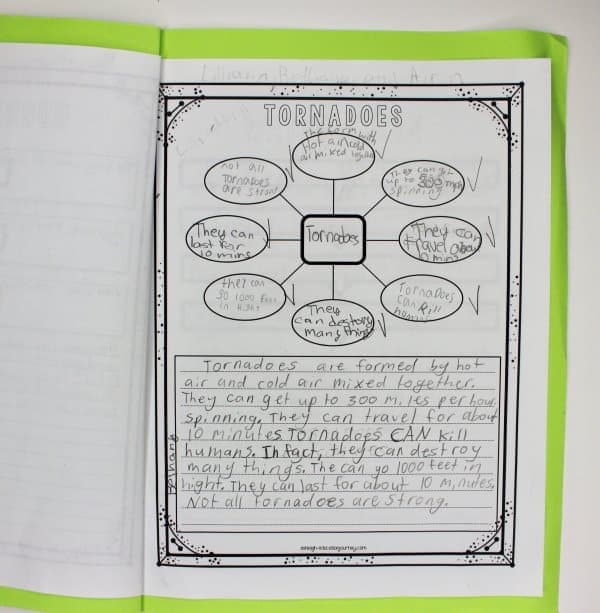 TORNADOES
The form with
Hot air cold
air mixed together
not all
Tornadoes
are strong
They can get
up to 300 mph
spinning
They can
last for
10 mins
Tornadoes
They can
travel about
10 mins
they can
go 1000 feet
in hight
They
can destory
many things
Tornadoes
can kill
humans
Tornadoes are formed by hot
air and cold air mixed together.
They can get up to 300 miles per hour
spinning. They can travel for about
10 minutes. Tornadoes CAN kill
humans. In fact, they can destroy
many things. The can go 1000 feet in
hight. They can last for about 10 minutes.
Not all tornadoes are strong.